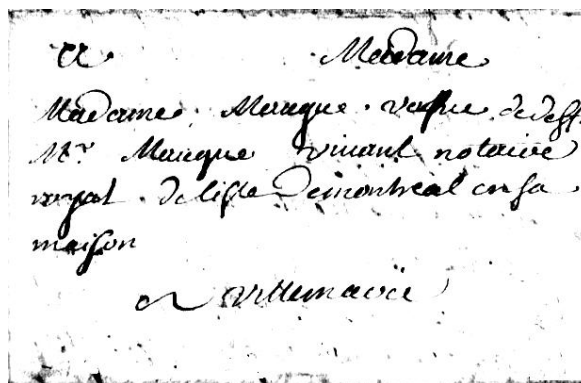 A Madame
Madame Maugue vefue de deff.
Mr. Maugue vivant notaire
royal de lisle de montreal en sa
maison
a villemarie